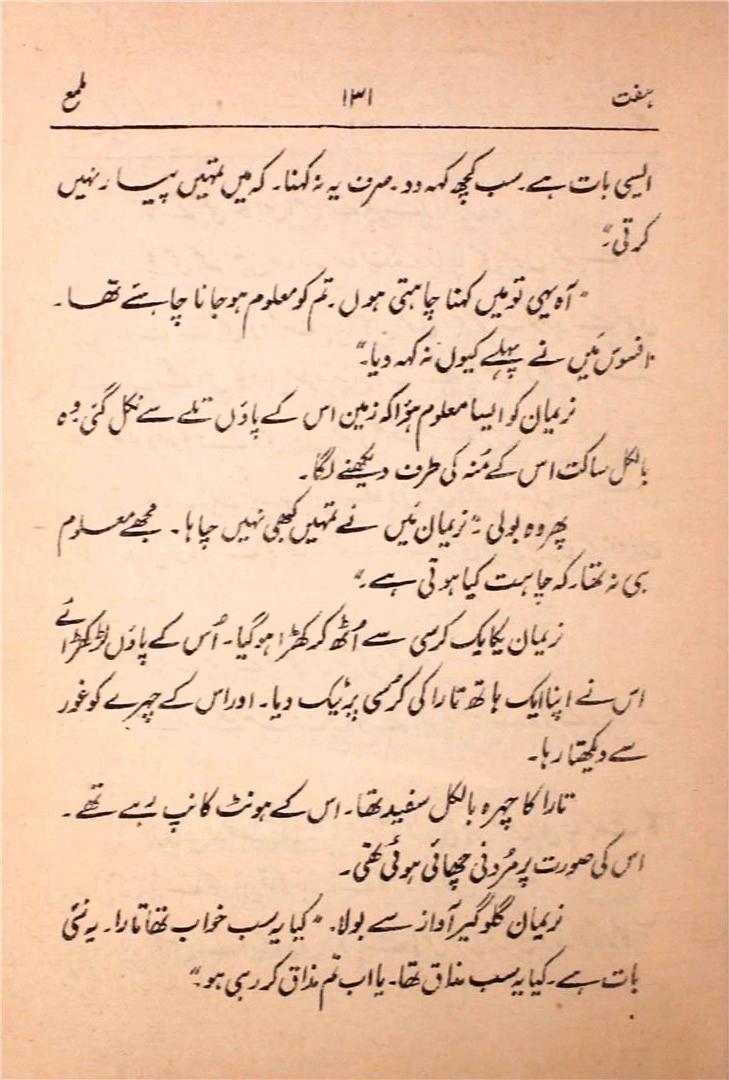 ہفت ۱۳۱ ملمع
ایسی بات ہے۔ سب کچھ کہہ دو۔ صرف یہ نہ کہنا۔ کہ میں تمہیں پیار نہیں
کرتی۔"
"آہ یہی تو میں کہنا چاہتی ہوں۔ تم کو معلوم ہو جانا چاہئے تھا۔
افسوس مَیں نے پہلے کیوں نہ کہہ دیا۔"
نریمان کو ایسا معلوم ہؤا کہ زمین اس کے پاؤں تلے سے نکل گئی وہ
بالکل ساکت اس کے مُنہ کی طرف دیکھنے لگا۔
پھر وہ بولی۔ "نریمان مَیں نے تمہیں کبھی نہیں چاہا۔ مجھے معلوم
ہی نہ تھا۔ کہ چاہت کیا ہوتی ہے۔"
نریمان یکایک کرسی سے اُٹھ کر کھڑا ہو گیا۔ اُس کے پاؤں لڑکھڑائے
اس نے اپنا ایک ہاتھ تارا کی کرسی پر ٹیک دیا۔ اور اس کے چہرے کو غور
سے دیکھتا رہا۔
تارا کا چہرہ بالکل سفید تھا۔ اس کے ہونٹ کانپ رہے تھے۔
اس کی صورت پر مُردنی چھائی ہوئی تھی۔
نریمان گلوگیر آواز سے بولا۔ "کیا یہ سب خواب تھا تارا۔ یہ نئی
بات ہے۔ کیا یہ سب مذاق تھا۔ یا اب تم مذاق کر رہی ہو۔"